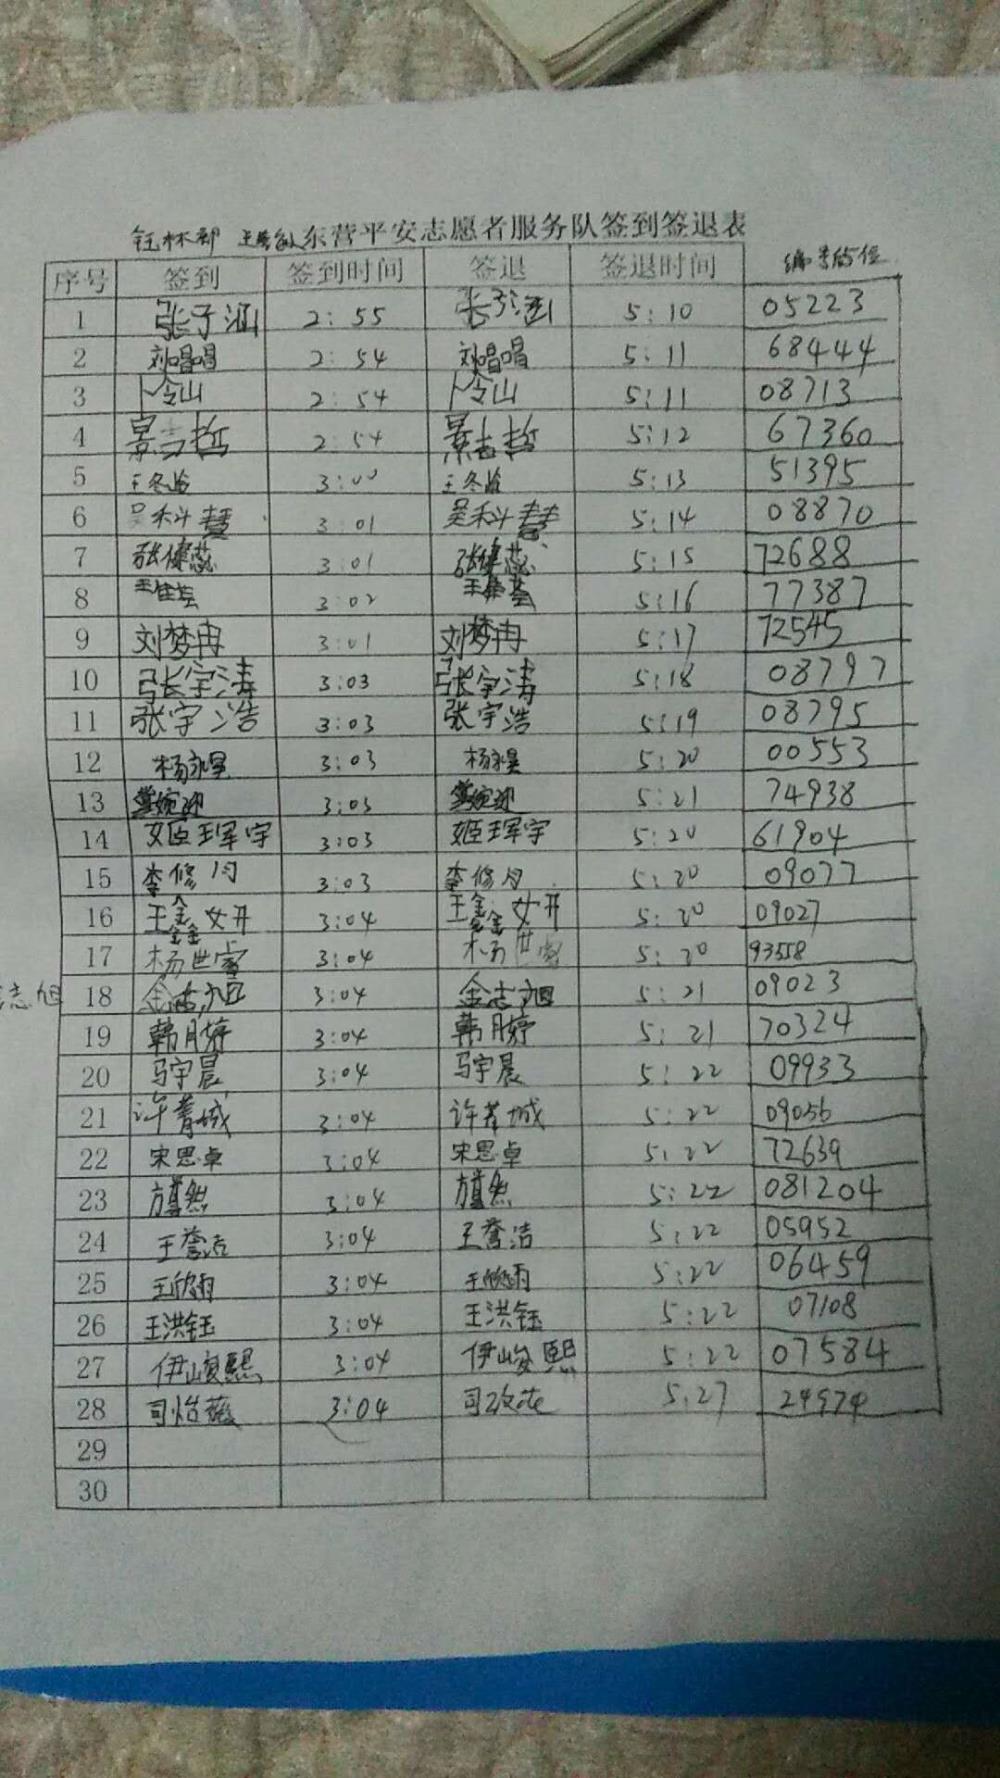 东营平安志愿者服务队签到签退表
序号 签到 签到时间 签退 签退时间 编号后5位
1 张子涵 2:55 张子涵 5:10 05223
2 刘唱唱 2:54 刘唱唱 5:11 68444
3 卜令山 2:54 卜令山 5:11 08713
4 景吉哲 2:54 景吉哲 5:12 67360
5 王冬 3:00 王冬 5:13 51395
6 吴科慧 3:01 吴科慧 5:14 08870
7 张健蕊 3:01 张健蕊 5:15 72688
8 3:02 5:16 77387
9 刘梦冉 3:01 刘梦冉 5:17 72545
10 张宇涛 3:03 张宇涛 5:18 08797
11 张宇浩 3:03 张宇浩 5:19 08795
12 杨昊 3:03 杨昊 5:20 00553
13 3:03 5:21 74938
14 姬珲宇 3:03 姬珲宇 5:20 61904
15 李修月 3:03 李修月 5:20 09077
16 王鑫妍 3:04 王鑫妍 5:20 09027
17 杨世睿 3:04 杨世睿 5:20 93558
志旭 18 金志旭 3:04 金志旭 5:21 09023
19 韩月婷 3:04 韩月婷 5:21 70324
20 马宇晨 3:04 马宇晨 5:22 09933
21 许菁城 3:04 许菁城 5:22 09056
22 宋思卓 3:04 宋思卓 5:22 72639
23 3:04 5:22 081204
24 王誉洁 3:04 王誉洁 5:22 05952
25 王欣雨 3:04 王欣雨 5:22 06459
26 王洪钰 3:04 王洪钰 5:22 07108
27 伊峻熙 3:04 伊峻熙 5:22 07584
28 司怡薇 3:04 司 5:27 24974
29
30